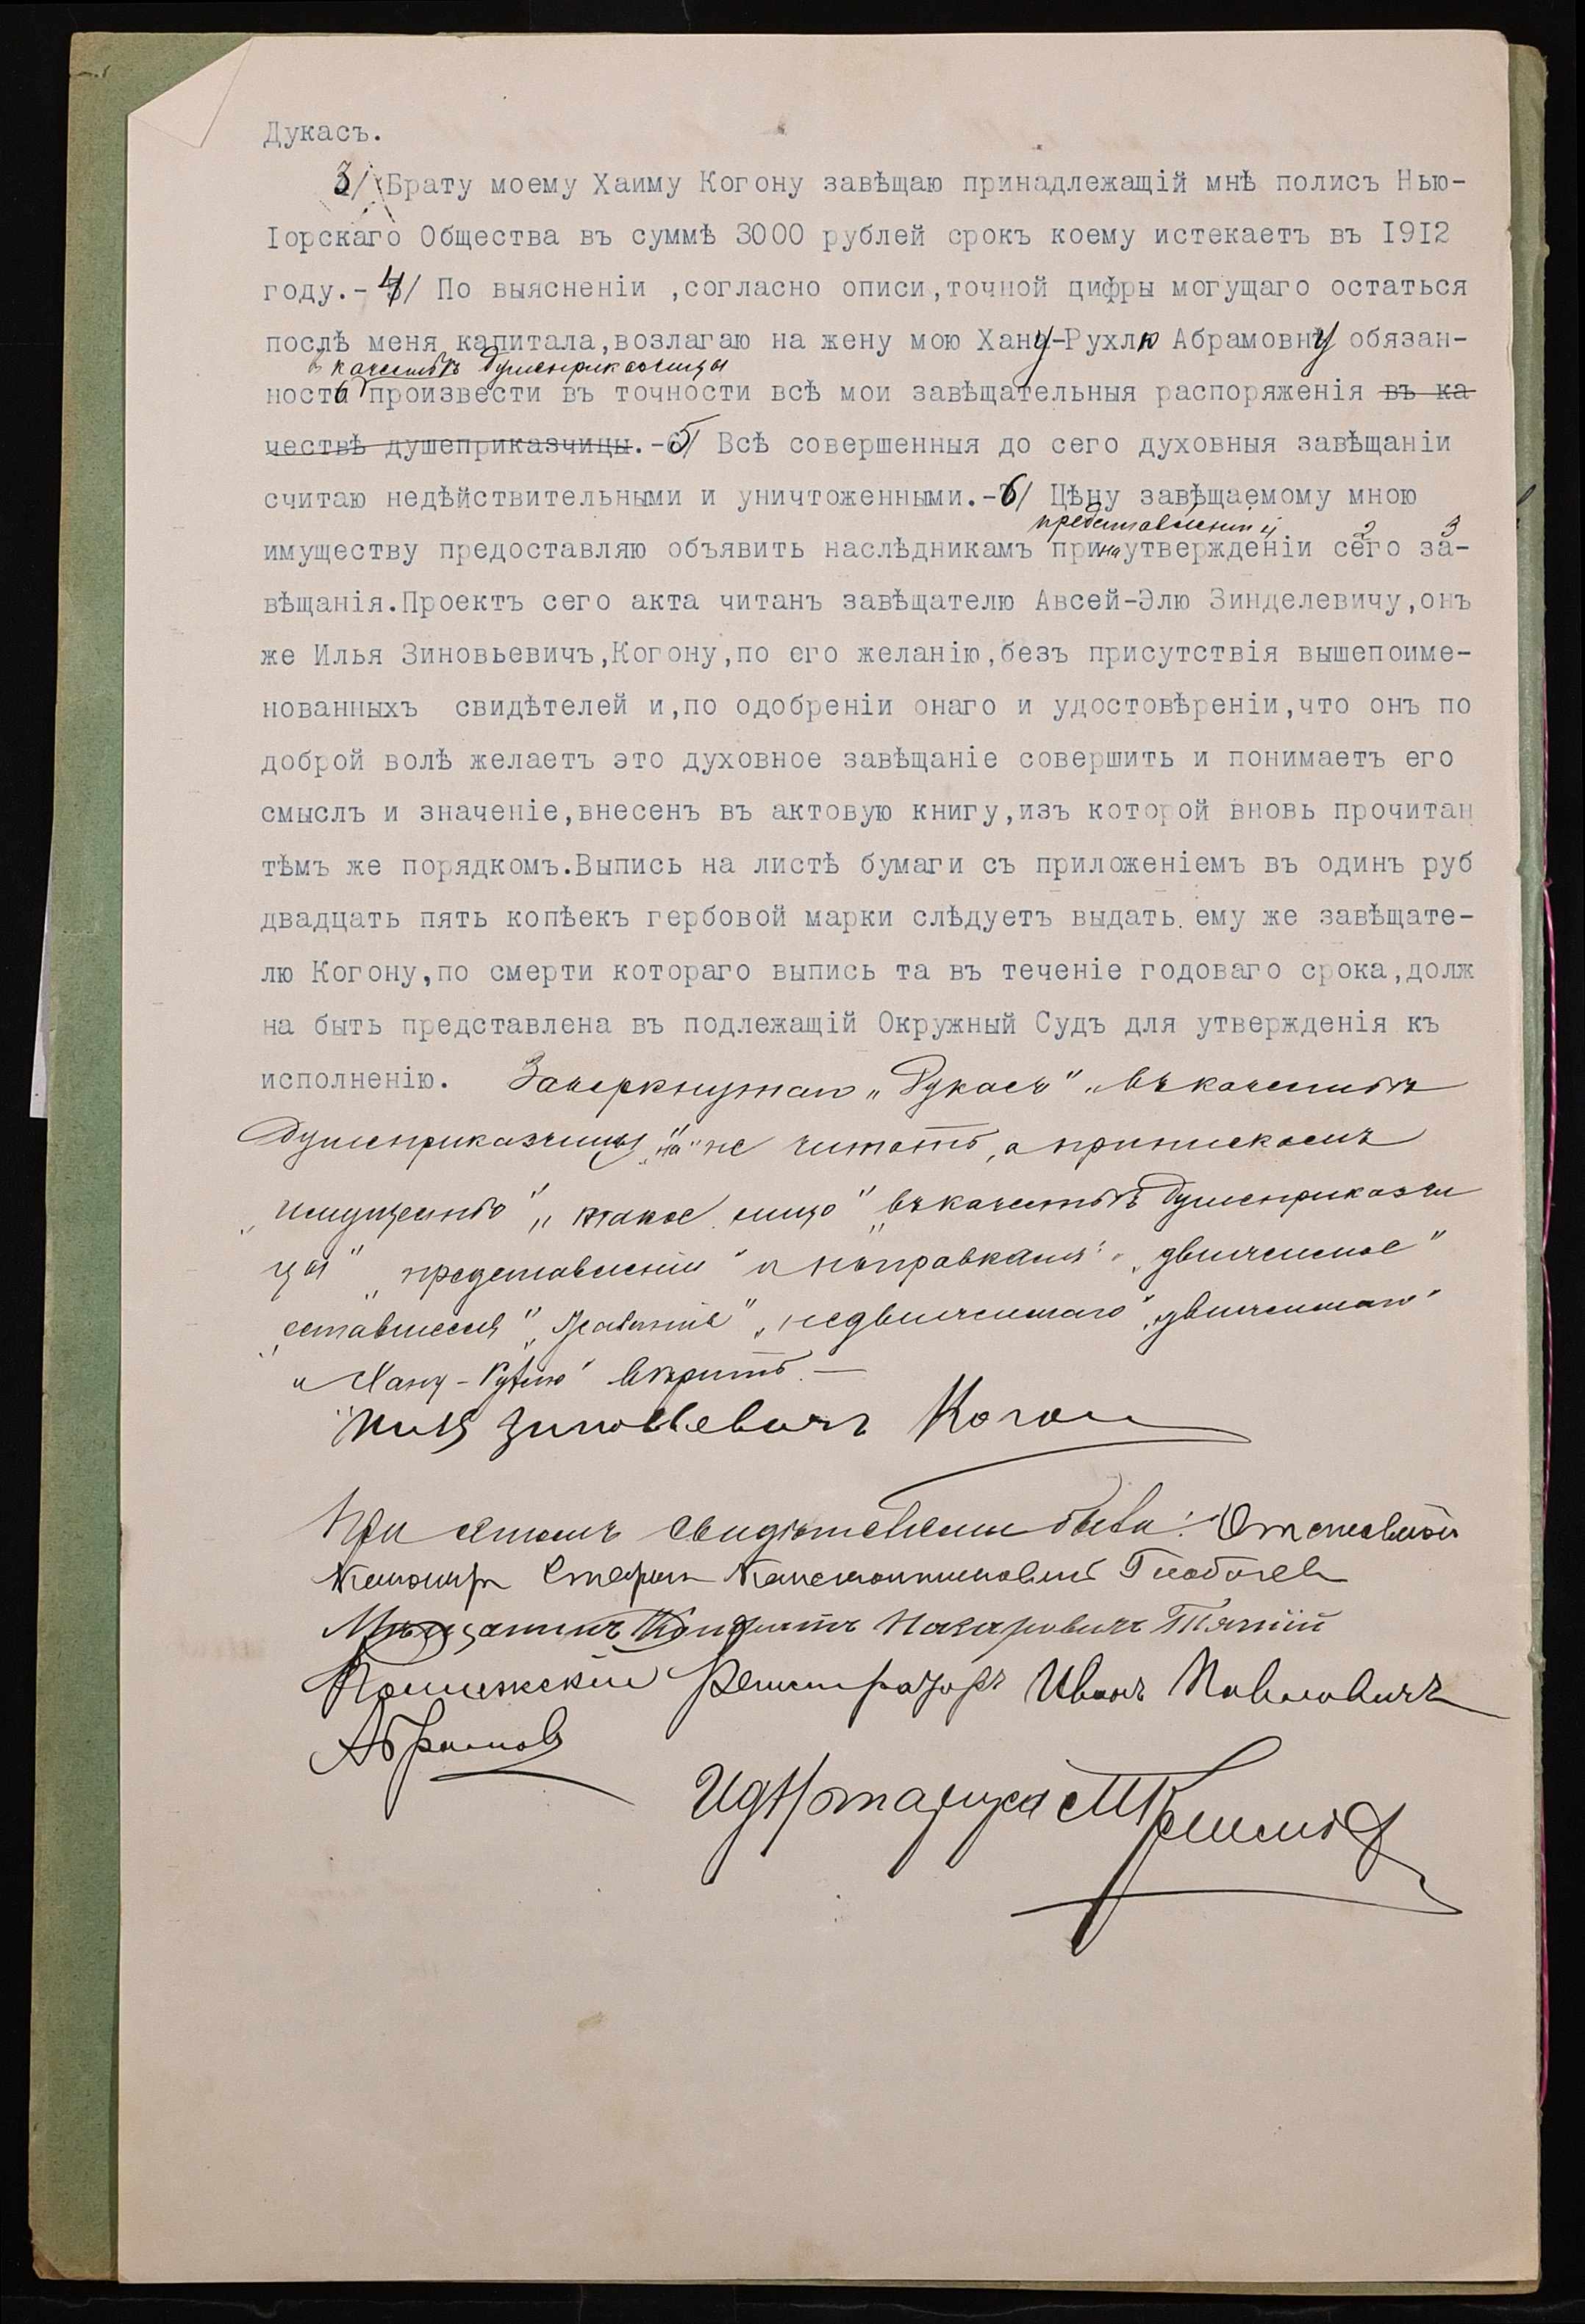 Дукасъ.
3/ Брату моему Хаиму Когону завѣщаю принадлежащій мнѣ полисъ Нью-
Іорскаго Общества въ суммѣ 3000 рублей срокъ коему истекаетъ въ I9I2
году.- 4/ По выясненіи ,согласно описи,точной цифры могущаго остаться
послѣ меня капитала,возлагаю на жену мою Хану-Рухлю Абрамовну обязан-
въ качествѣ душеприказчицы
ность произвести въ точности всѣ мои завѣщательныя распоряженія въ ка
чествѣ душеприказчицы.-5/ Всѣ совершенныя до сего духовныя завѣщаніи
считаю недѣйствительными и уничтоженными.-6/ Цѣну завѣщаемому мною
представленіи 2 3
имуществу предоставляю объявить наслѣдникамъ при на утвержденіи сего за-
вѣщанія.Проектъ сего акта читанъ завѣщателю Авсей-Элю Зинделевичу,онъ
же Илья Зиновьевичъ,Когону,по его желанію,безъ присутствія вышепоиме-
нованныхъ свидѣтелей и,по одобреніи онаго и удостовѣреніи,что онъ по
доброй волѣ желаетъ это духовное завѣщаніе совершить и понимаетъ его
смыслъ и значеніе,внесенъ въ актовую книгу,изъ которой вновь прочитан
тѣмъ же порядкомъ.Выпись на листѣ бумаги съ приложеніемъ въ одинъ руб
двадцать пять копѣекъ гербовой марки слѣдуетъ выдать ему же завѣщате-
лю Когону,по смерти котораго выпись та въ теченіе годоваго срока,долж
на быть представлена въ подлежащій Окружный Судъ для утвержденія къ
исполненію. Зачеркнутаго „Дукасъ" „въ качествѣ
душеприказчицы „на" не читать, а припискамъ
„имущество" „также лицо" „въ качествѣ душеприказчи
цы" „представленіи" и поправкамъ: „движимое"
„оставшееся" „недвижимаго" „движимаго"
и Хану-Рухлю вѣрить.—
Илья Зиновьевичъ Когон
При семъ свидѣтелями были: Отставной
Константиновичъ
Мѣщанинъ Кондратъ Назаровичъ
Коллежскій Регистраторъ Иванъ Павловичъ
Абрамов
Нотаріуса